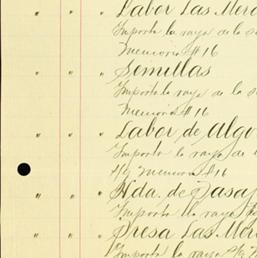 " " " Labor Las Merc
Importe la raya de la s
Memoria #16
" " " Semillas
Importe la raya de la s
Memoria #16
" " " Labor de Algo
Importe la raya de
Memoria #16
" " " Hda. de Tasaj
Importe la raya
" " " Presa Las Mer
Importe la raya